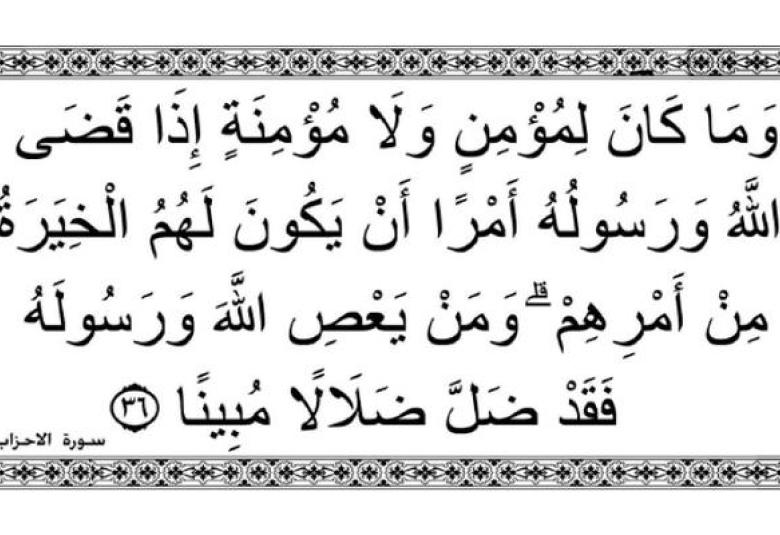 وَمَا كَانَ لِمُؤْمِنٍ وَلَا مُؤْمِنَةٍ إِذَا قَضَى
اللَّهُ وَرَسُولُهُ أَمْرًا أَنْ يَكُونَ لَهُمُ الْخِيَرَةُ
مِنْ أَمْرِهِمْ ۗ وَمَنْ يَعْصِ اللَّهَ وَرَسُولَهُ
فَقَدْ ضَلَّ ضَلَالًا مُبِينًا ٣٦
سورة الاحزاب